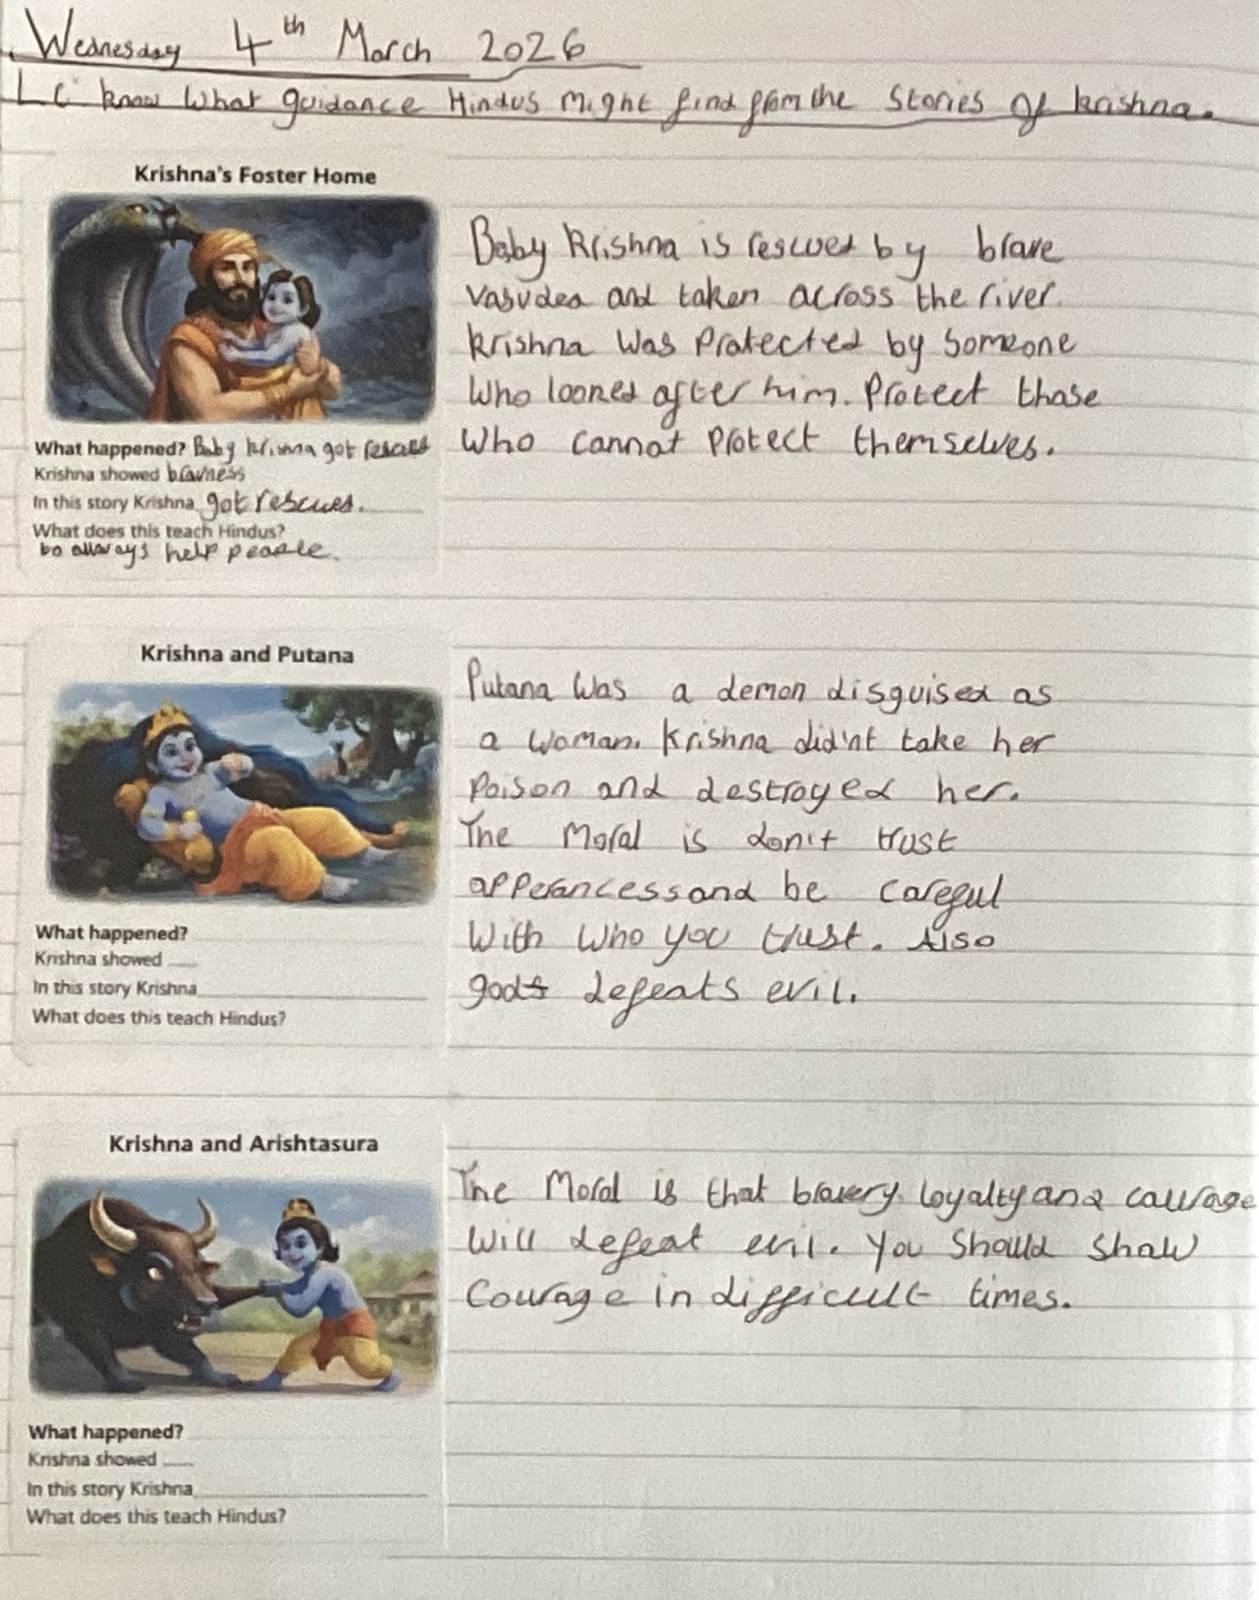 Wednesday 4th March 2026
LC know What guidance Hindus Might find from the Stories of krishna.
Krishna's Foster Home
What happened? Baby krisnna got rescued
Krishna showed bravness
In this story Krishna got rescued.
What does this teach Hindus?
to allways help people.
Baby Krishna is rescued by brave
Vasudea and taken across the river.
Krishna Was Protected by Someone
Who looked after him. Protect those
Who cannot Protect themselves.
Krishna and Putana
What happened?
Krishna showed
In this story Krishna
What does this teach Hindus?
Putana Was a demon disguised as
a Woman. Krishna did'nt take her
Poison and destroyed her.
The Moral is don't trust
apperancess and be careful
With Who you trust. Also
gods defeats evil.
Krishna and Arishtasura
What happened?
Krishna showed
In this story Krishna
What does this teach Hindus?
The Moral is that bravery, loyalty and courage
Will defeat evil. You Should Show
Courage in difficult times.